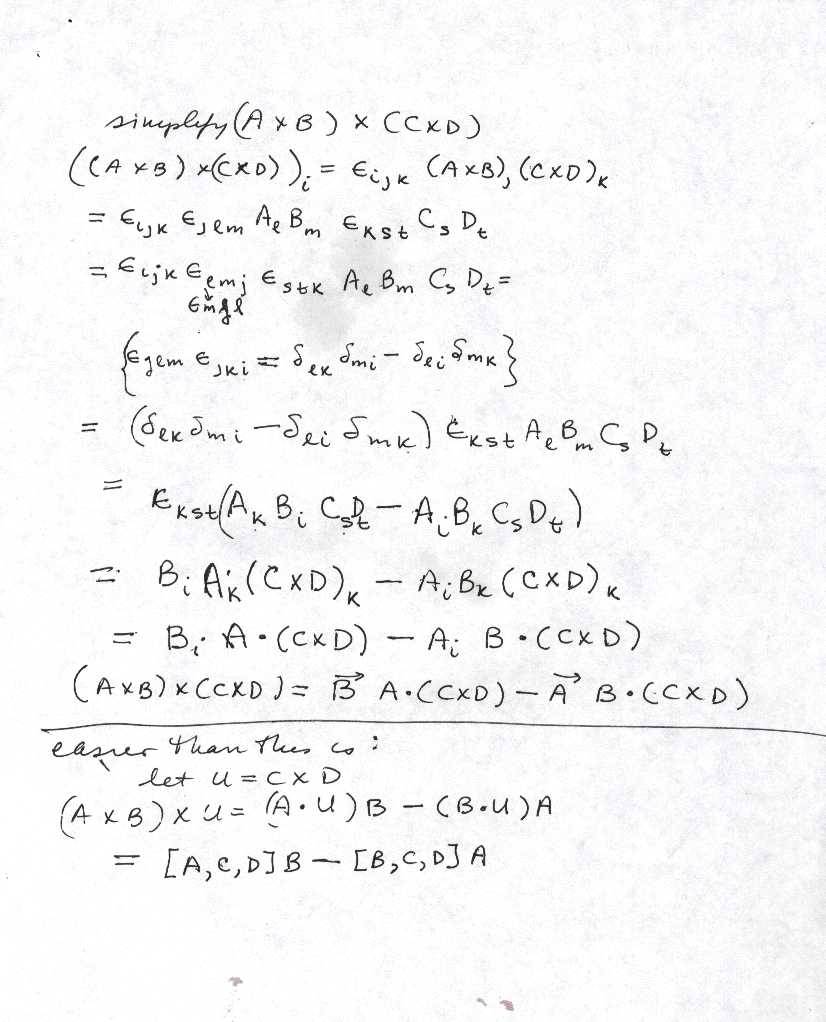 simplify (A × B) × (C×D)
((A × B) ×(C×D))ᵢ = ϵᵢⱼₖ (A×B)ⱼ (C×D)ₖ
= ϵᵢⱼₖ ϵⱼₗₘ Aₗ Bₘ ϵₖₛₜ Cₛ Dₜ
= ϵᵢⱼₖ ϵₗₘⱼ ϵₛₜₖ Aₗ Bₘ Cₛ Dₜ =
ϵₘⱼₗ
{ϵⱼₗₘ ϵⱼₖᵢ = δₗₖ δₘᵢ − δₗᵢ δₘₖ}
= (δₗₖ δₘᵢ − δₗᵢ δₘₖ) ϵₖₛₜ Aₗ Bₘ Cₛ Dₜ
= ϵₖₛₜ(Aₖ Bᵢ CₛDₜ − Aᵢ Bₖ Cₛ Dₜ)
= Bᵢ Aₖ(C×D)ₖ − Aᵢ Bₖ (C×D)ₖ
= Bᵢ A·(C×D) − Aᵢ B·(C×D)
(A×B)×(C×D) = B⃗ A·(C×D) − A⃗ B·(C×D)
easier than this is :
let U = C × D
(A × B) × U = (A·U)B − (B·U)A
= [A,C,D]B − [B,C,D]A